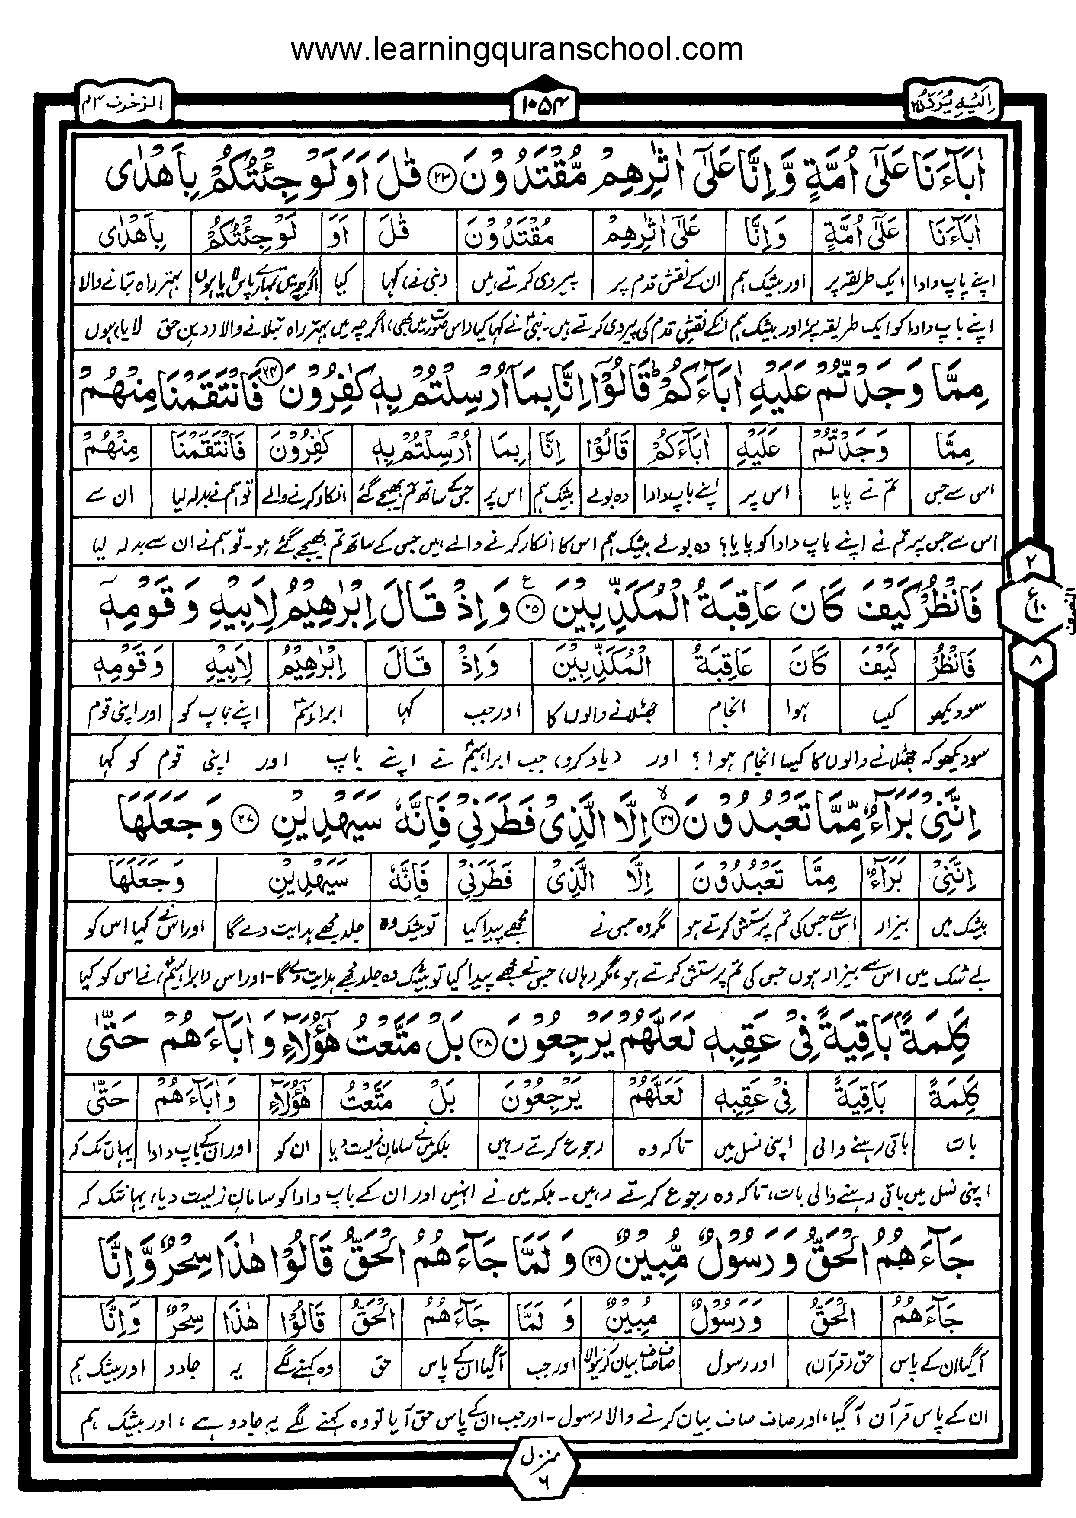 www.learningquranschool.com
اِلَيْهِ يُرَدُّ ٢٥
١٠٥٤
الزخرف ٤٣
اٰبَآءَنَا عَلٰٓى اُمَّةٍ وَّاِنَّا عَلٰٓى اٰثٰرِهِمْ مُّقْتَدُوْنَ ﴿٢٣﴾ قٰلَ اَوَلَوْ جِئْتُكُمْ بِاَهْدٰى
اٰبَآءَنَا عَلٰٓى اُمَّةٍ وَاِنَّا عَلٰٓى اٰثٰرِهِمْ مُقْتَدُوْنَ قٰلَ اَوَ لَوْ جِئْتُكُمْ بِاَهْدٰى
اپنے باپ دادا ایک طریقہ پر اور بیشک ہم ان کے نقش قدم پر پیروی کرتے ہیں (نبی نے) کہا کیا اگرچہ میں تمہارے پاس لایا ہوں بہتر راہ بتانے والا
اپنے باپ دادا کو ایک طریقہ پر اور بیشک ہم انکے نقش قدم کی پیروی کرتے ہیں۔ نبیؐ نے کہا کیا (اس صورت میں بھی) اگرچہ میں بہتر راہ بتلانے والا (دین حق) لایا ہوں
مِمَّا وَجَدْتُّمْ عَلَيْهِ اٰبَآءَكُمْ قَالُوْٓا اِنَّا بِمَآ اُرْسِلْتُمْ بِهٖ كٰفِرُوْنَ ﴿٢٤﴾ فَانْتَقَمْنَا مِنْهُمْ
مِمَّا وَجَدْتُّمْ عَلَيْهِ اٰبَآءَكُمْ قَالُوْٓا اِنَّا بِمَا اُرْسِلْتُمْ بِهٖ كٰفِرُوْنَ فَانْتَقَمْنَا مِنْهُمْ
اس سے جس تم نے پایا اس پر اپنے باپ دادا وہ بولے بیشک ہم اس پر جس کے ساتھ تم بھیجے گئے انکار کرنے والے تو ہم نے بدلہ لیا ان سے
اس سے جس پر تم نے اپنے باپ دادا کو پایا؟ وہ بولے بیشک ہم اس کا انکار کرنے والے ہیں جس کے ساتھ تم بھیجے گئے ہو۔ تو ہم نے ان سے بدلہ لیا
فَانْظُرْ كَيْفَ كَانَ عَاقِبَةُ الْمُكَذِّبِيْنَ ﴿٢٥﴾ وَاِذْ قَالَ اِبْرٰهِيْمُ لِاَبِيْهِ وَقَوْمِهٖٓ
فَانْظُرْ كَيْفَ كَانَ عَاقِبَةُ الْمُكَذِّبِيْنَ وَاِذْ قَالَ اِبْرٰهِيْمُ لِاَبِيْهِ وَقَوْمِهٖ
سو دیکھو کیسا ہوا انجام جھٹلانے والوں کا اور جب کہا ابراہیمؑ اپنے باپ کو اور اپنی قوم
سو دیکھو کہ جھٹلانے والوں کا کیسا انجام ہوا؟ اور (یاد کرو) جب ابراہیمؑ نے اپنے باپ اور اپنی قوم کو کہا
اِنَّنِيْ بَرَآءٌ مِّمَّا تَعْبُدُوْنَ ﴿٢٦﴾ اِلَّا الَّذِيْ فَطَرَنِيْ فَاِنَّهٗ سَيَهْدِيْنِ ﴿٢٧﴾ وَجَعَلَهَا
اِنَّنِيْ بَرَآءٌ مِمَّا تَعْبُدُوْنَ اِلَّا الَّذِيْ فَطَرَنِيْ فَاِنَّهٗ سَيَهْدِيْنِ وَجَعَلَهَا
بیشک میں بیزار اس سے جس کی تم پرستش کرتے ہو مگر وہ جس نے مجھے پیدا کیا تو بیشک وہ جلد مجھے ہدایت دے گا اور اس نے کیا اس کو
بے شک میں اس سے بیزار ہوں جس کی تم پرستش کرتے ہو، مگر (ہاں) جس نے مجھے پیدا کیا تو بیشک وہ جلد مجھے ہدایت دے گا۔ اور اس (ابراہیمؑ) نے اس کو کیا
كَلِمَةًۢ بَاقِيَةً فِيْ عَقِبِهٖ لَعَلَّهُمْ يَرْجِعُوْنَ ﴿٢٨﴾ بَلْ مَتَّعْتُ هٰٓؤُلَآءِ وَاٰبَآءَهُمْ حَتّٰى
كَلِمَةً بَاقِيَةً فِيْ عَقِبِهٖ لَعَلَّهُمْ يَرْجِعُوْنَ بَلْ مَتَّعْتُ هٰٓؤُلَآءِ وَاٰبَآءَهُمْ حَتّٰى
بات باقی رہنے والی اپنی نسل میں تاکہ وہ رجوع کرتے رہیں بلکہ میں نے سامان زیست دیا ان کو اور ان کے باپ دادا یہاں تک کہ
اپنی نسل میں باقی رہنے والی بات، تاکہ وہ رجوع کرتے رہیں۔ بلکہ میں نے انہیں اور ان کے باپ دادا کو سامان زیست دیا، یہانتک کہ
جَآءَهُمُ الْحَقُّ وَرَسُوْلٌ مُّبِيْنٌ ﴿٢٩﴾ وَلَمَّا جَآءَهُمُ الْحَقُّ قَالُوْا هٰذَا سِحْرٌ وَّاِنَّا
جَآءَهُمُ الْحَقُّ وَرَسُوْلٌ مُبِيْنٌ وَلَمَّا جَآءَهُمُ الْحَقُّ قَالُوْا هٰذَا سِحْرٌ وَاِنَّا
آگیا ان کے پاس حق (قرآن) اور رسول صاف صاف بیان کرنیوالا اور جب آگیا ان کے پاس حق وہ کہنے لگے یہ جادو اور بیشک ہم
ان کے پاس قرآن آگیا، اور صاف صاف بیان کرنے والا رسول۔ اور جب ان کے پاس حق آیا تو وہ کہنے لگے یہ جادو ہے، اور بیشک ہم
٢
ع ١٠
٨
النصف
منزل ٦